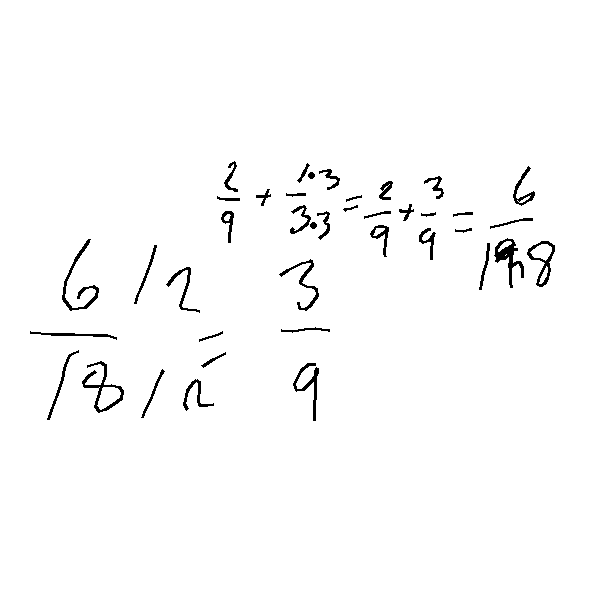 2/9 + 1·3/3·3 = 2/9 + 3/9 = 6/18
6/2 / 18/2 = 3/9